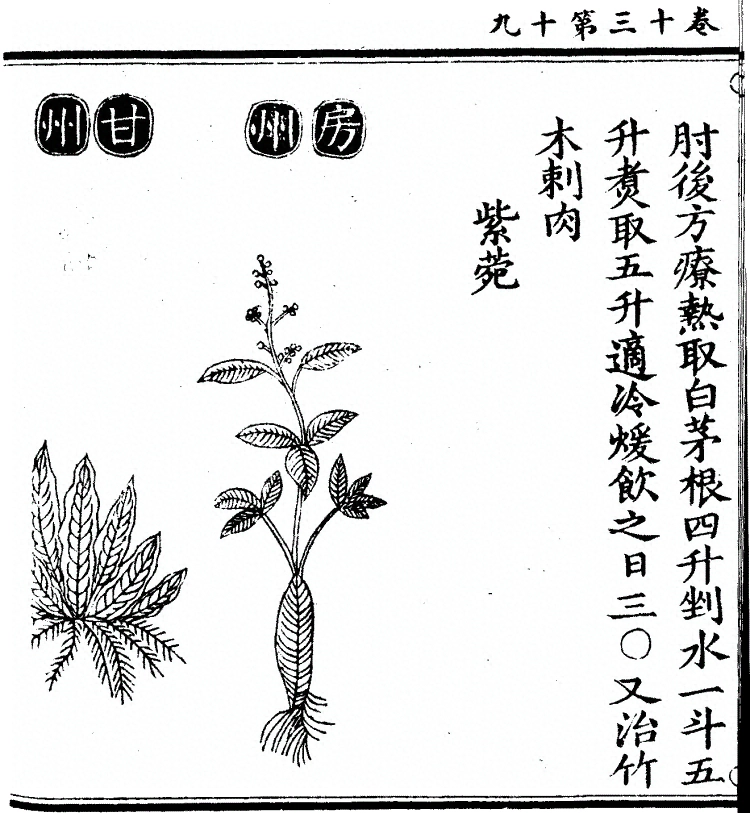 卷十三第十九
肘後方療熱取白茅根四升剉水一斗五
升煑取五升適冷煖飲之日三〇又治竹
木刺肉
紫菀
房州
甘州